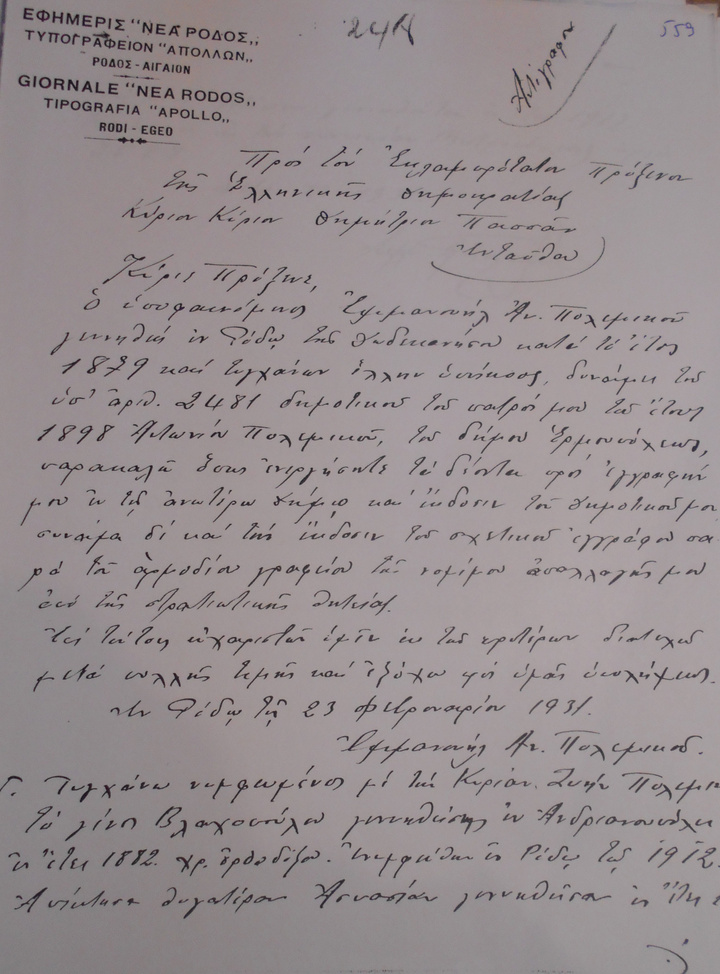 ΕΦΗΜΕΡΙΣ "ΝΕΑ ΡΟΔΟΣ„
ΤΥΠΟΓΡΑΦΕΙΟΝ "ΑΠΟΛΛΩΝ„
ΡΟΔΟΣ - ΑΙΓΑΙΟΝ
GIORNALE "NEA RODOS„
TIPOGRAFIA "APOLLO„
RODI - EGEO
559
Ἀντίγραφον
Πρὸς τὸν Ἐκλαμπρότατον Πρόξενον
τῆς Ἑλληνικῆς Δημοκρατίας
Κύριον Κύριον Δημήτριον Πασσᾶν
Ἐνταῦθα
Κύριε Πρόξενε,
Ὁ ὑποφαινόμενος Ἐμμανουὴλ Ἀν. Πολεμικοῦ
γεννηθεὶς ἐν Ῥόδῳ τῆς Δωδεκανήσου κατὰ τὸ ἔτος
1879 καὶ τυγχάνων Ἕλλην ὑπήκοος, δυνάμει τοῦ
ὑπ' ἀριθ. 2481 δημοτικοῦ τοῦ πατρός μου τοῦ ἔτους
1898 Ἀντωνίου Πολεμικοῦ, τοῦ δήμου Ἑρμουπόλεως,
παρακαλῶ ὅπως ἐνεργήσητε τὰ δέοντα πρὸς ἐγγραφήν
μου ἐν τῷ ἀνωτέρω Δήμῳ καὶ ἔκδοσιν τοῦ δημοτικοῦ μου
συνάμα δὲ καὶ τὴν ἔκδοσιν τοῦ σχετικοῦ ἐγγράφου πα-
ρὰ τοῦ ἁρμοδίου γραφείου τῆς νομίμου ἀπαλλαγῆς μου
ἀπὸ τῆς στρατιωτικῆς θητείας.
Ἐπὶ τούτοις εὐχαριστῶν ὑμῖν ἐκ τῶν προτέρων διατελῶ
μετὰ πολλῆς τιμῆς καὶ ἐξόχου πρὸς ὑμᾶς ὑπολήψεως.
Ἐν Ῥόδῳ τῇ 23 Φεβρουαρίου 1931.
Ἐμμανουὴλ Ἀν. Πολεμικοῦ.
Τυγχάνω νυμφευμένος μὲ τὴν Κυρίαν Πολεμικ
τὸ γένος Βλαχοπούλου γεννηθείσης ἐν Ἀνδριανουπόλει
ἐν ἔτει 1882. χρ. ὀρθοδόξου. Ἐνυμφεύθην ἐν Ῥόδῳ τῷ 1912.
Ἀπέκτησα θυγατέραν Ἀσπασίαν γεννηθεῖσαν ἐν ἔτει